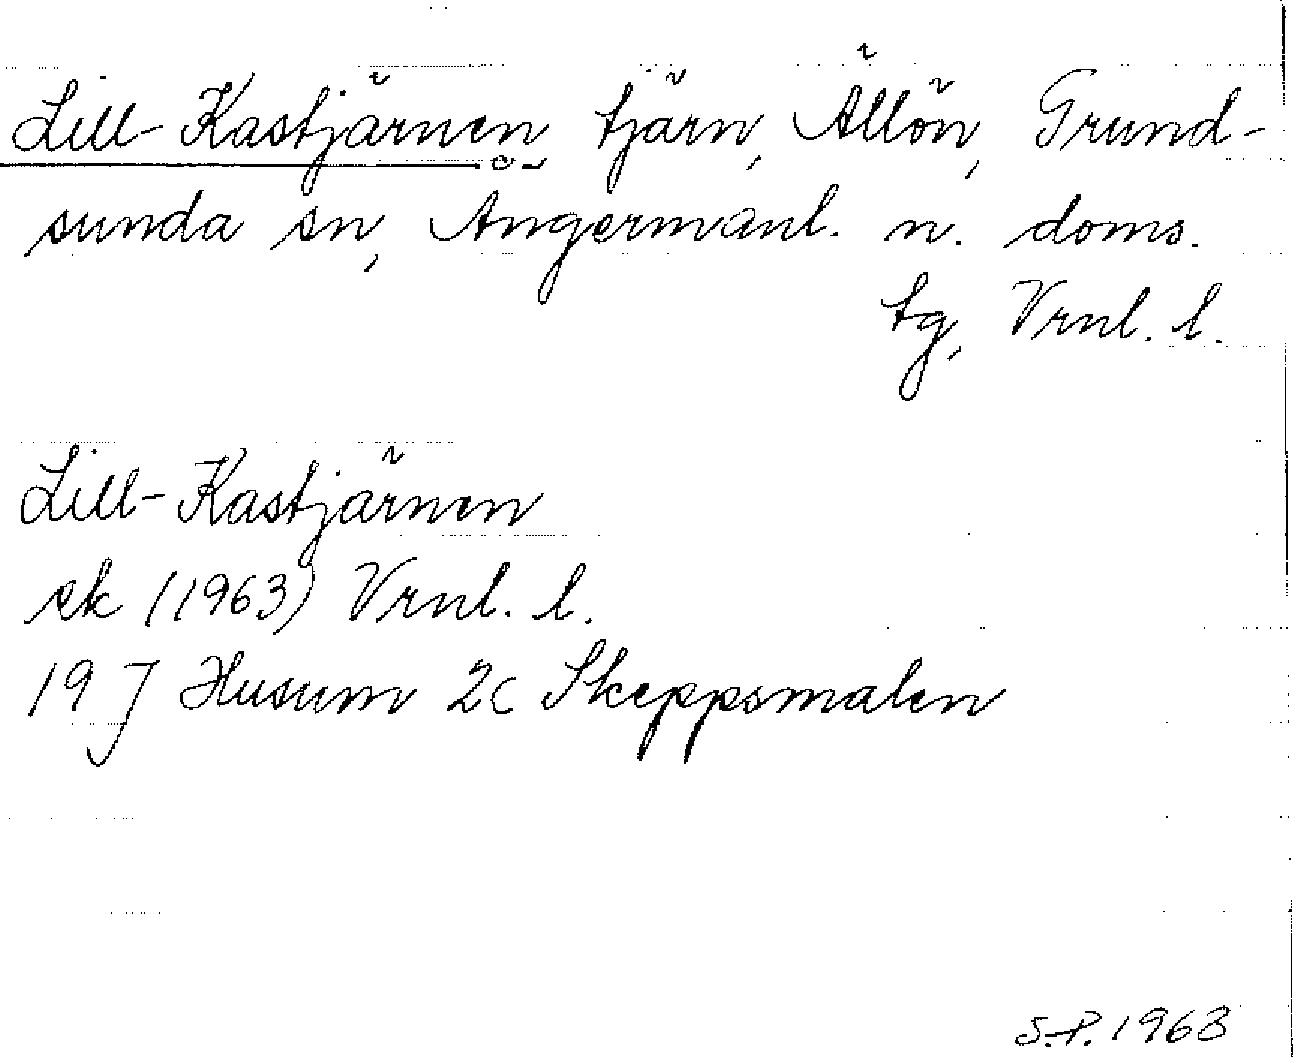 Lill-Kastjärnen, tjärn, Ällön, Grund-
sunda sn, Ångermanl. n. doms.
tg, Vrnl. l.
Lill-Kastjärnen
ek (1963) Vrnl. l.
19 J Husum 2c Skeppsmalen
S.P. 1963